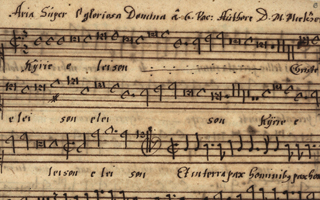 Aria Super O gloriosa Domina â 6. Voc: Authore D. M.
Kÿrie e leison Christe
e lei son elei son Kÿrie e
leison e lei son Et in terra pax hominibꝫ pax hom